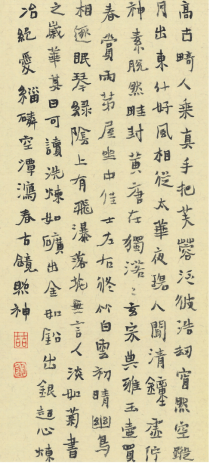 高古畸人乘真手把芙蓉泛彼浩劫窅然空蹤
月出東斗好風相從太華夜碧人聞清鐘虛佇
神素脫然畦封黃唐在獨落々玄宗典雅玉壺買
春賞雨茅屋坐中佳士左右修竹白雲初晴幽鳥
相逐眠琴綠陰上有飛瀑落花無言人淡如菊書
之歲華其曰可讀洗煉如礦出金如鉛出銀超心煉
冶絕愛緇磷空潭瀉春古鏡照神